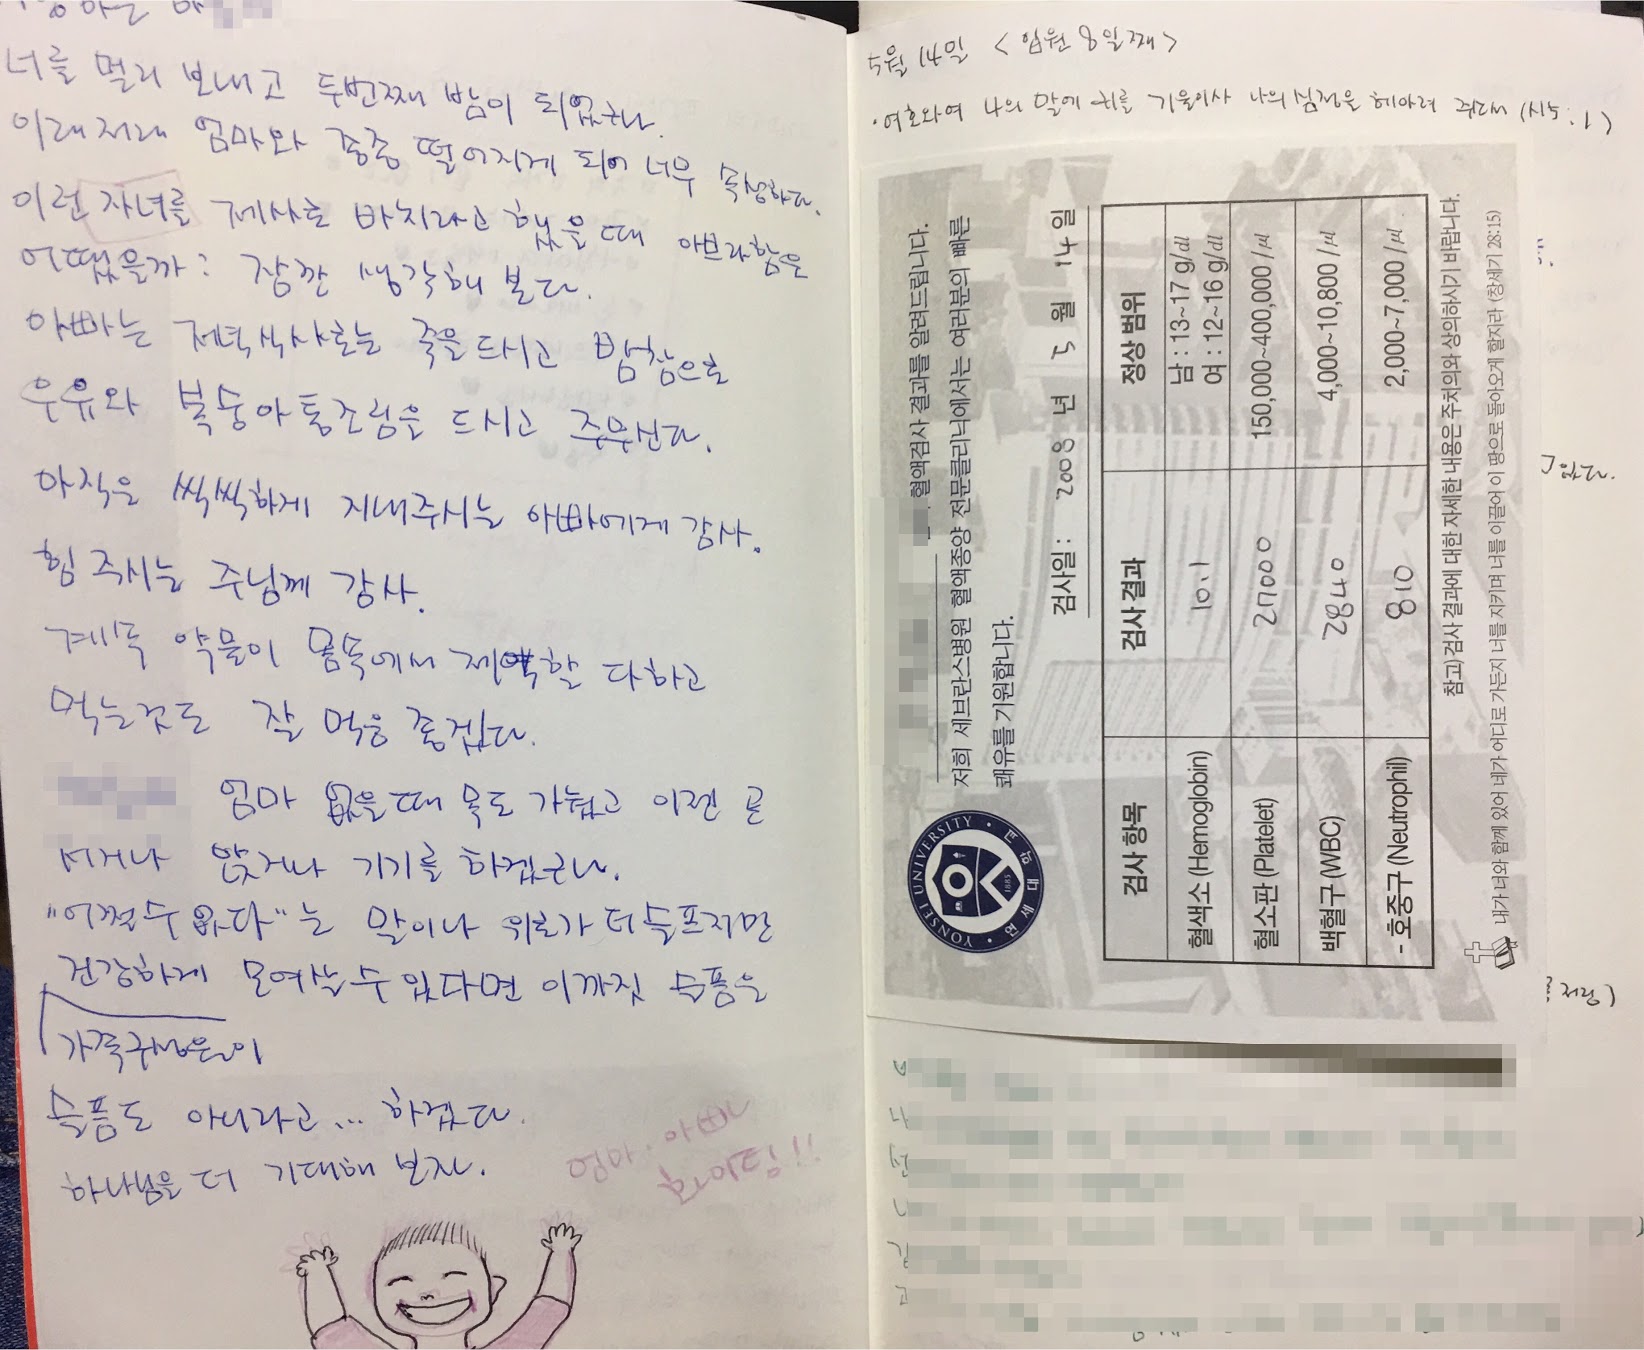 너를 멀리 보내고 두번째 밤이 되었구나.
이래저래 엄마와 종종 떨어지게 되어 너무 속상하다.
이런 자녀를 제사로 바치라고 했을때 아브라함은
어땠을까? 잠깐 생각해 본다.
아빠는 저녁식사로는 죽을 드시고 밤참으로
우유와 복숭아 통조림을 드시고 주무신다.
아직은 씩씩하게 지내주시는 아빠에게 감사.
힘 주시는 주님께 감사.
계속 약물이 몸속에서 제역할 다하고
먹는것도 잘 먹음 좋겠다.
엄마 없을때 목도 가눴고 이젠 곧
서거나 앉거나 기기를 하겠구나.
"어쩔수 없다"는 말이나 위로가 더 슬프지만
건강하게 모여살수 있다면 이까짓 슬픔을
가족구성원이
슬픔도 아니라고... 하겠다.
하나님을 더 기대해 보자.
엄마. 아빠
5월 14일 <입원 8일째>
·여호와여 나의 말에 귀를 기울이사 나의 심정을 헤아려 주소서 (시5:1)
혈액검사 결과를 알려드립니다.
저희 세브란스병원 혈액종양 전문클리닉에서는 여러분의 빠른
쾌유를 기원합니다.
검사일: 2008년 5월 14일
검사 항목 검사 결과 정상 범위
혈색소 (Hemoglobin) 10.1 남 : 13~17 g/dl
여 : 12~16 g/dl
혈소판 (Platelet) 27000 150,000~400,000 /μl
백혈구 (WBC) 2840 4,000~10,800 /μl
- 호중구 (Neutrophil) 810 2,000~7,000 /μl
참고) 검사 결과에 대한 자세한 내용은 주치의와 상의하시기 바랍니다.
내가 너와 함께 있어 네가 어디로 가든지 너를 지키며 너를 이끌어 이 땅으로 돌아오게 할지라 (창세기 28:15)
YONSEI UNIVERSITY · 연세대학교 ·
1885
있다.